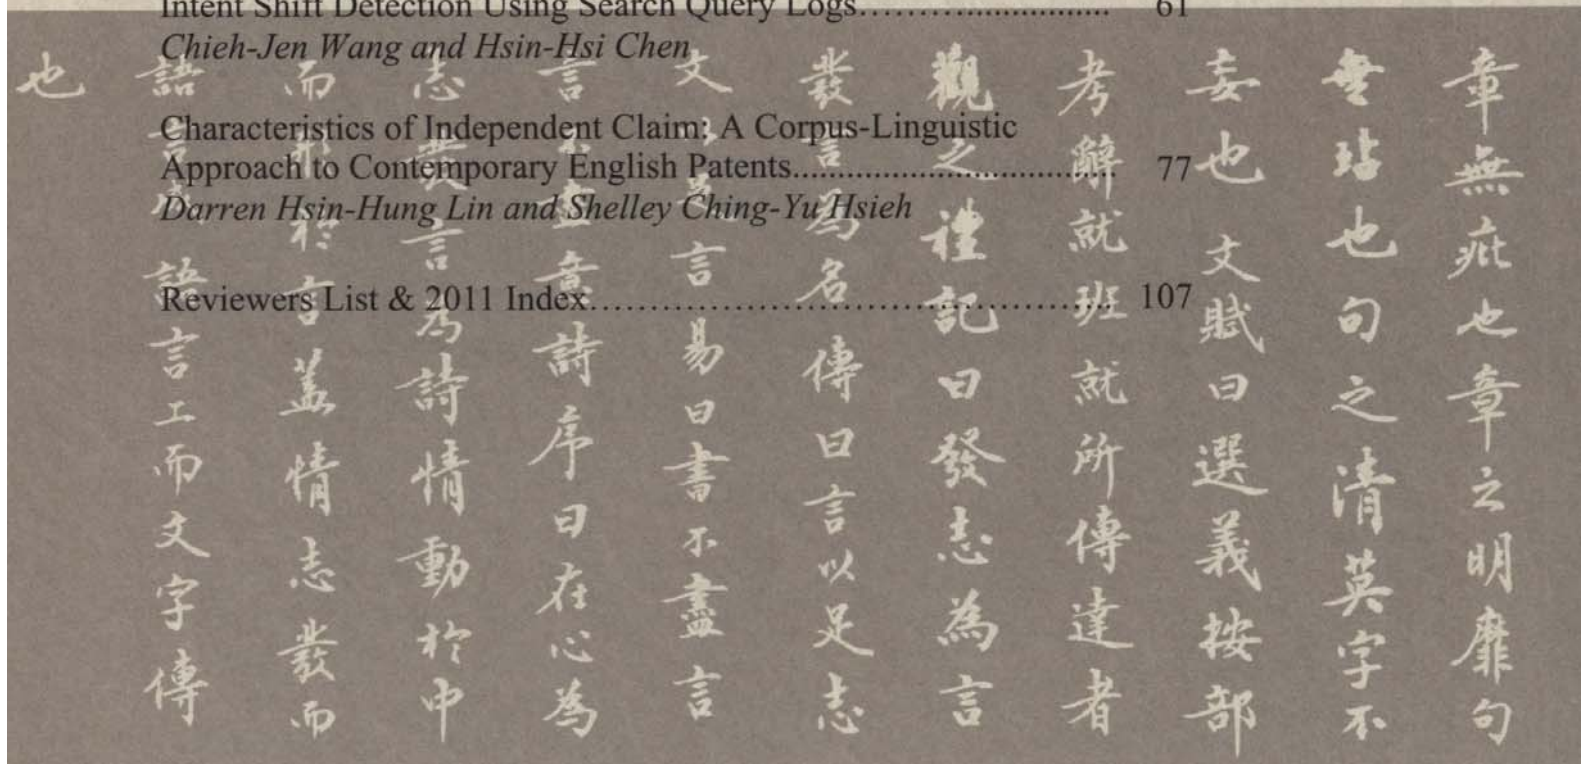 Intent Shift Detection Using Search Query Logs.......................... 61
Chieh-Jen Wang and Hsin-Hsi Chen
Characteristics of Independent Claim: A Corpus-Linguistic
Approach to Contemporary English Patents.................................. 77
Darren Hsin-Hung Lin and Shelley Ching-Yu Hsieh
Reviewers List & 2011 Index................................................ 107
章無疵也章之明靡句
無玷也句之清英字不
妄也文賦曰選義按部
考辭就班就所傳達者
觀之禮記曰發志為言
發言為名傳曰言以足志
文以足言易曰書不盡言
言不盡意詩序曰在心為
志發言為詩情動於中
而形於言蓋情志發而
語言語言工而文字傳
也